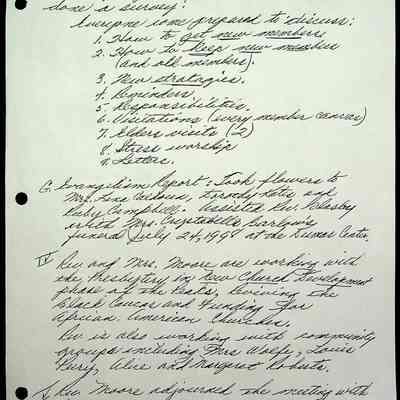 done a survey?
Everyone come prepared to discuss:
1. How to get new members
2. How to keep new members
(and old members).
3. New strategies.
4. Reminders
5. Responsibilities.
6. Visitations (every member canvas)
7. Elders visits (-2)
8. Stress worship
9. Letters.
G. Evangelism Report: Took flowers to
Mrs. Calhoun, and
Ruby Campbell. Assisted Rev.
with Mrs.
funeral July 24, 1998 at the Center.
IV Rev and Mrs. Moore are working with
the Presbytery in New Church Development
phase of the Reviving the
Black Caucus and Funding for
African American Churches.
Rev is also working with community
groups including Mrs Wolfe, Louis
and Margaret Roberts.
Rev. Moore adjourned the meeting with